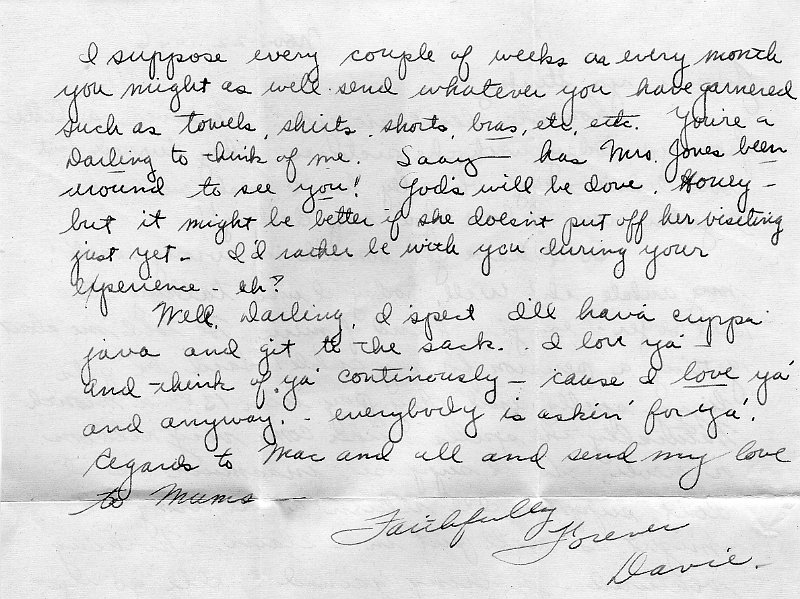 I suppose every couple of weeks as every month
you might as well send whatever you have garnered
such as towels, skirts, shorts, bras, etc, etc. You're a
Darling to think of me. Saay — has Mrs. Jones been
around to see you! God's will be done. Honey —
but it might be better if she doesn't put off her visiting
just yet — I'd rather be with you during your
experience — eh?
Well, Darling, I spect I'll hava cuppa
java and git to the sack. I lov ya' —
and think of ya' continously — 'cause I love ya'
and anyway. — everybody is askin' for ya'.
Regards to Mac and all and send my love
to Mums —
Faithfully
Forever
Davie.